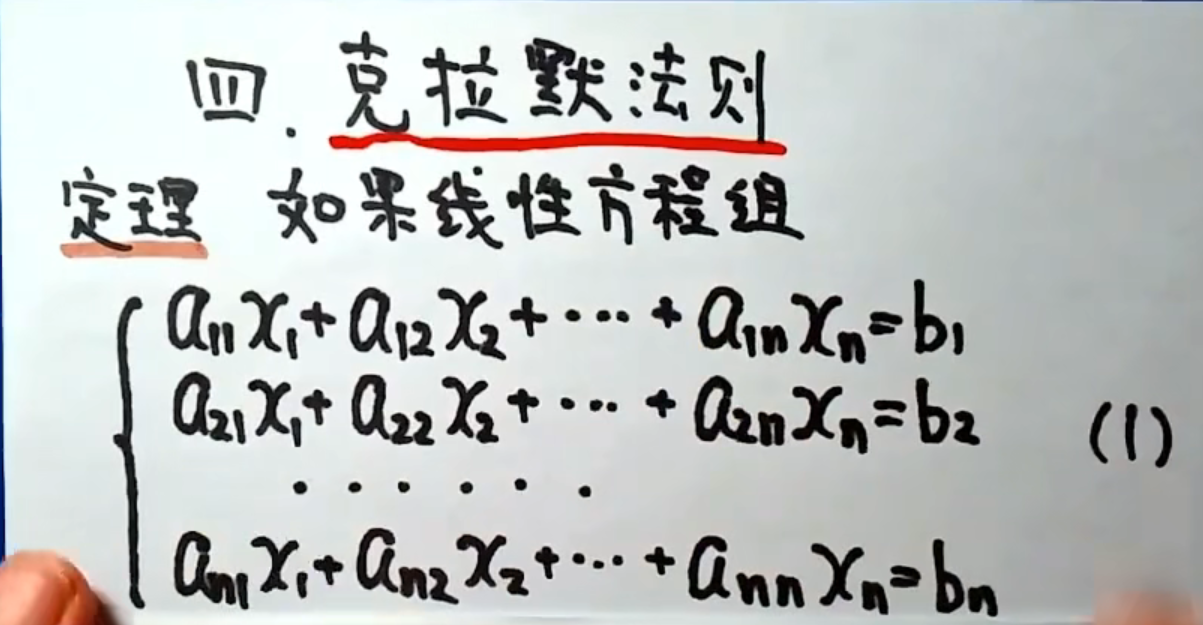 四.克拉默法则
定理 如果线性方程组
a₁₁x₁+a₁₂x₂+⋯+a₁ₙxₙ=b₁
a₂₁x₁+a₂₂x₂+⋯+a₂ₙxₙ=b₂ (1)
· · · · · ·
aₙ₁x₁+aₙ₂x₂+⋯+aₙₙxₙ=bₙ